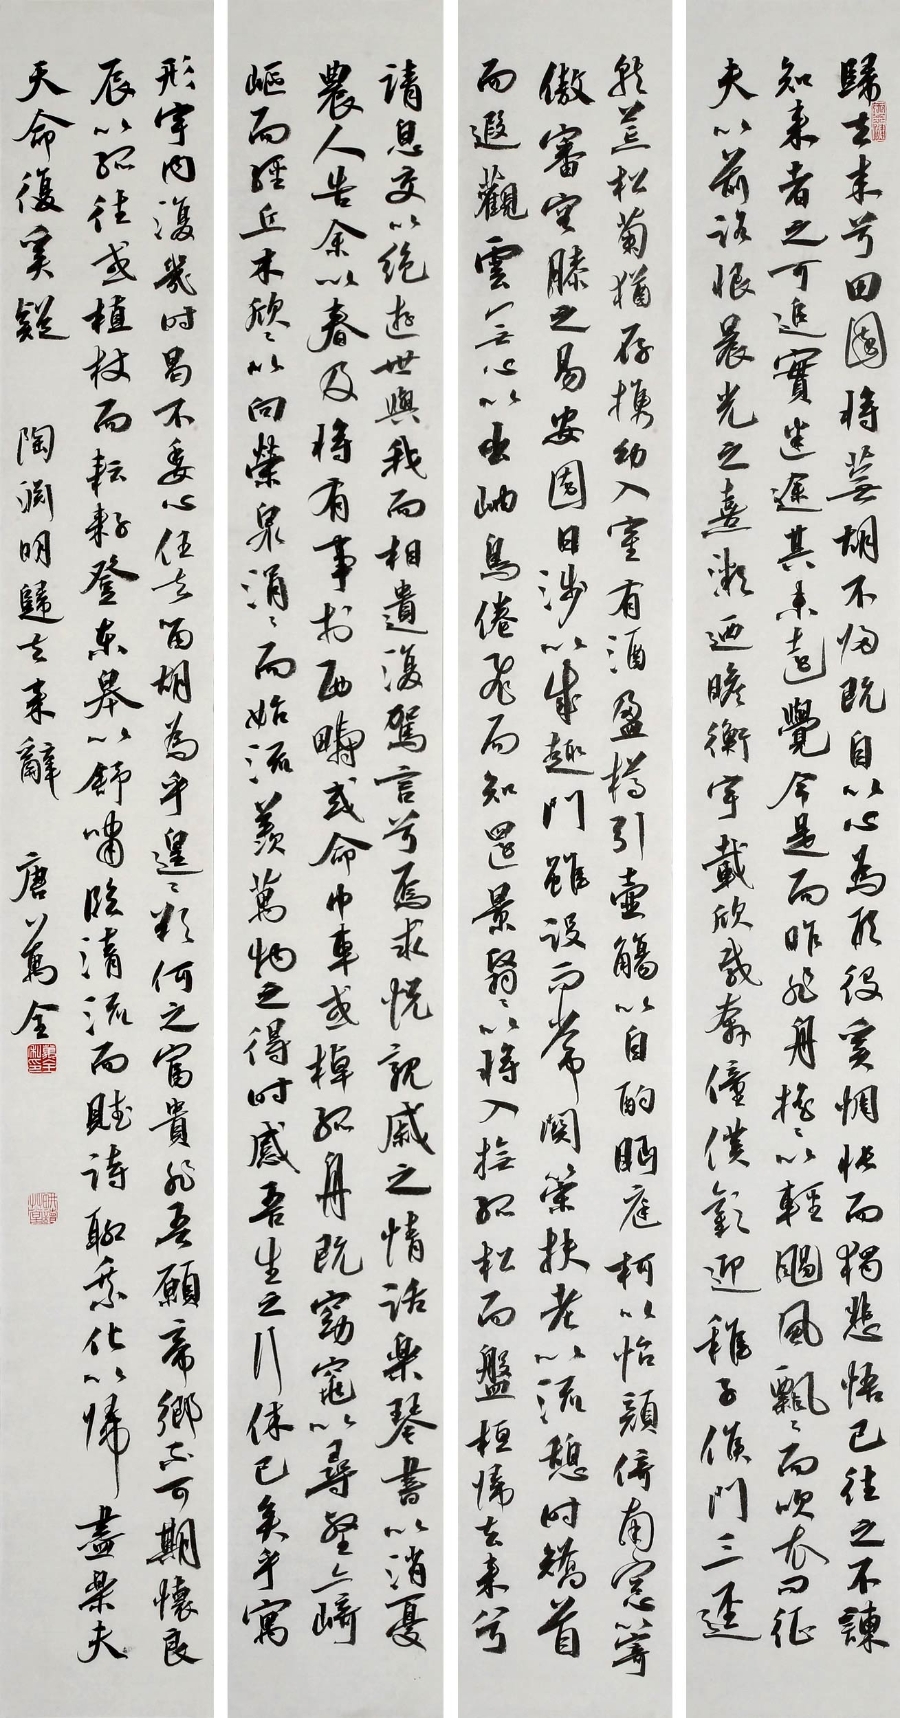 歸去来兮田園将蕪胡不帰既自以心為形役奚惆悵而獨悲悟已往之不諫
知来者之可追實迷途其未遠覺今是而昨非舟搖々以輕颺風飄々而吹衣問征
夫以前路恨晨光之熹微迺瞻衡宇載欣載奔僮僕歡迎稚子候門三逕
就荒松菊猶存携幼入室有酒盈樽引壺觴以自酌眄庭柯以怡顏倚南窓以寄
傲審容膝之易安園日涉以成趣門雖設而常關策扶老以流憩時矯首
而遐觀雲無心以出岫鳥倦飛而知還景翳々以将入撫孤松而盤桓帰去来兮
請息交以絶遊世與我而相遺復駕言兮焉求悦親戚之情話樂琴書以消憂
農人告余以春及将有事於西疇或命巾車或棹孤舟既窈窕以尋壑亦崎
嶇而經丘木欣々以向榮泉涓々而始流羨萬物之得時感吾生之行休已矣乎寓
形宇内復幾時曷不委心任去留胡為乎遑々欲何之富貴非吾願帝鄉不可期懷良
辰以孤往或植杖而耘耔登東皋以舒嘯臨清流而賦詩聊乘化以帰盡樂夫
天命復奚疑 陶淵明歸去来辭 唐萬全